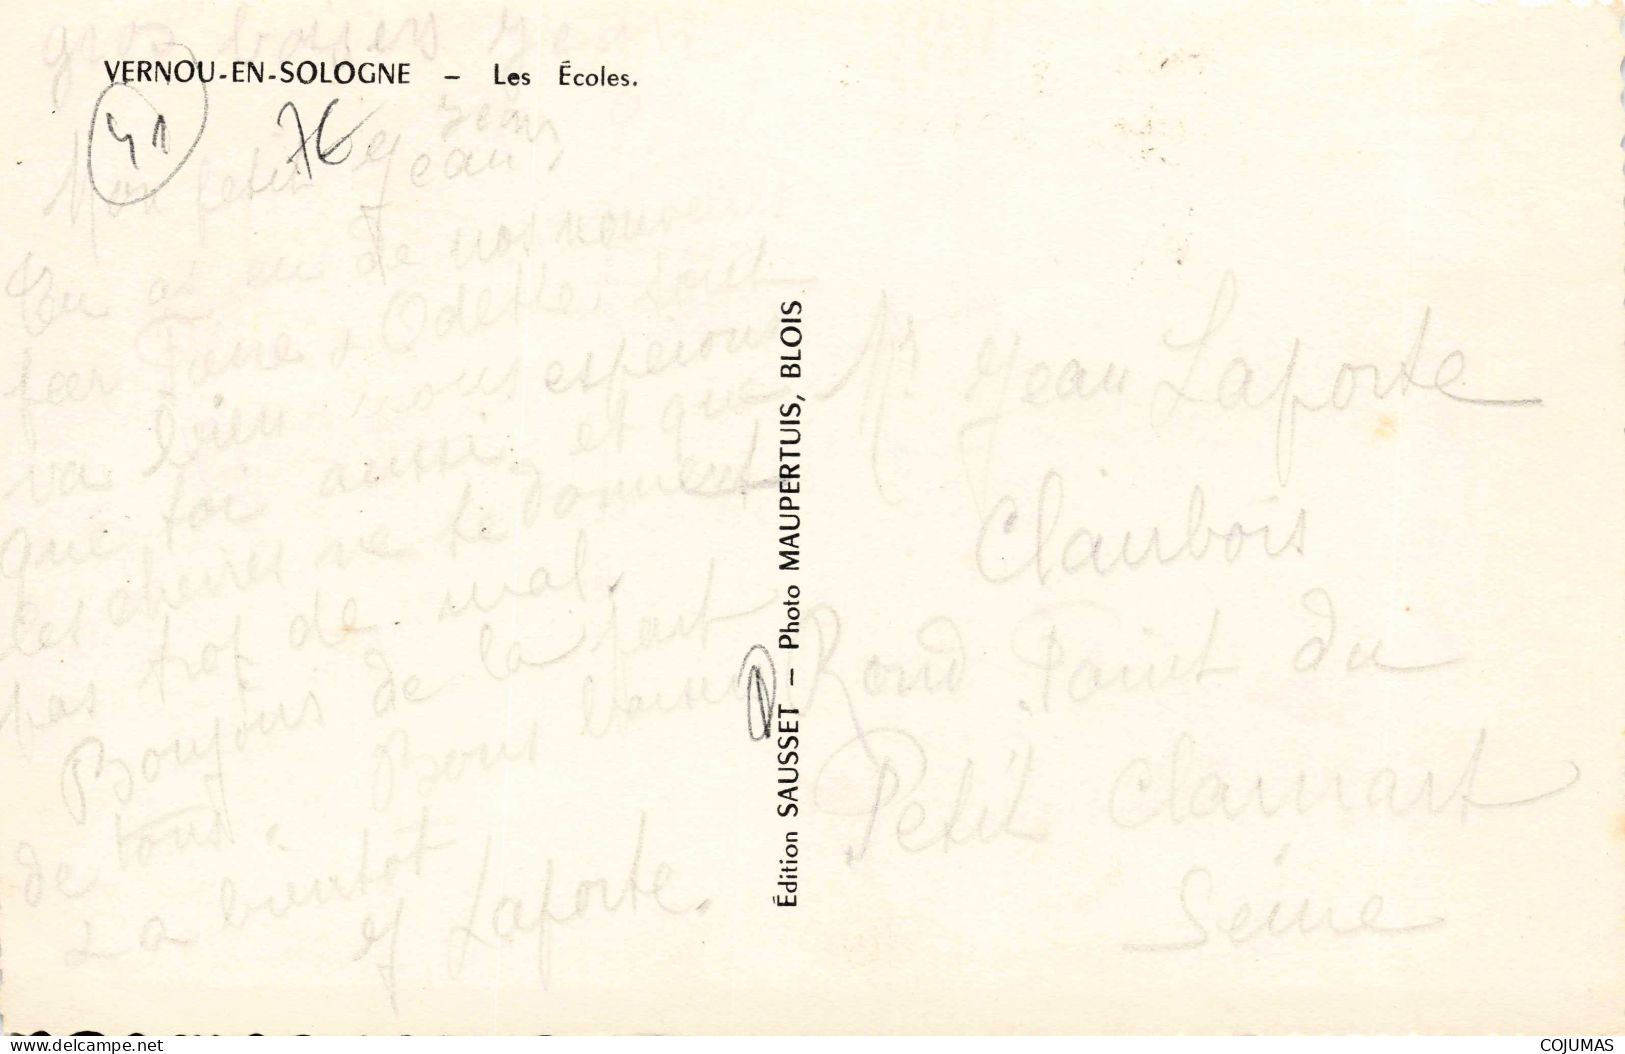 gros baisers Jean
VERNOU-EN-SOLOGNE – Les Écoles.
41
7€
Jean
Mon petit Jean
Tu as eu de nos nouvelles
par Odette, tout
va bien nous espérons
que toi aussi, et que
les chèvres ne te donnent
pas trop de mal.
Bonjours de la part
de tous. Bons baisers
a bientôt
Laporte.
Édition SAUSSET – Photo MAUPERTUIS, BLOIS
Mr Jean Laporte
Clairbois
Rond Point du
Petit Clamart
Seine
www.delcampe.net
COJUMAS